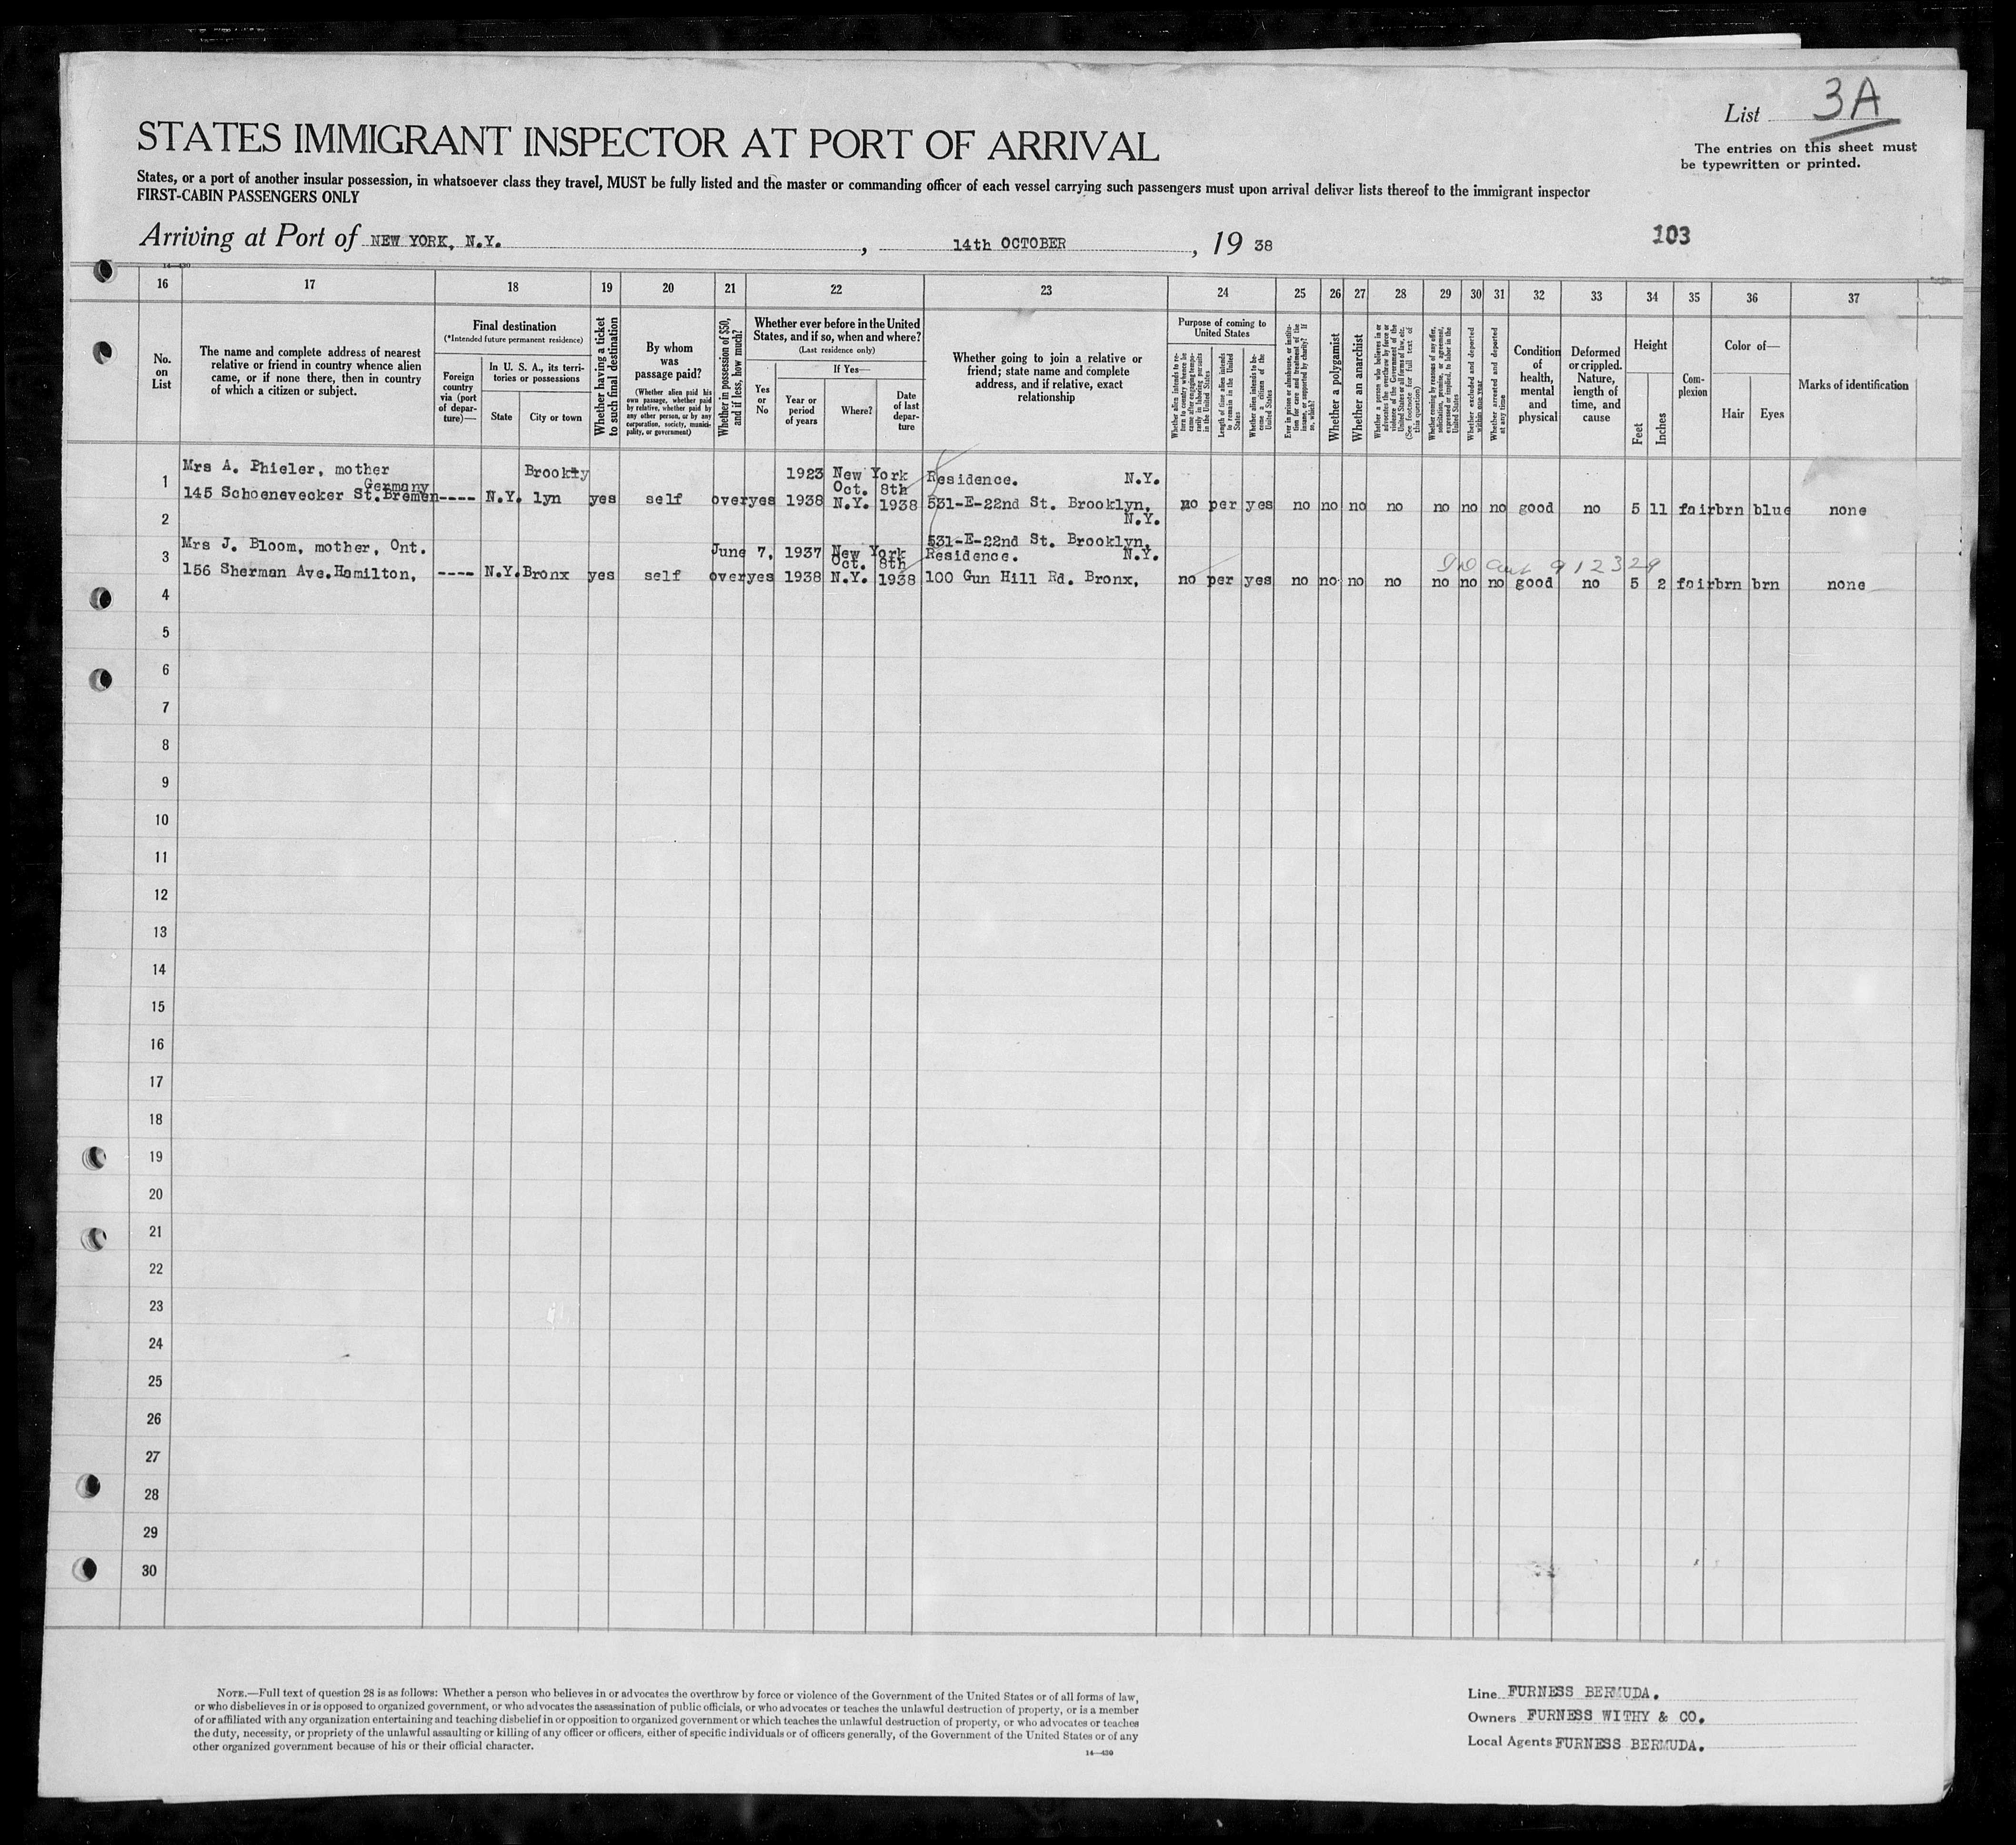 List 3A
The entries on this sheet must
be typewritten or printed.
STATES IMMIGRANT INSPECTOR AT PORT OF ARRIVAL
States, or a port of another insular possession, in whatsoever class they travel, MUST be fully listed and the master or commanding officer of each vessel carrying such passengers must upon arrival deliver lists thereof to the immigrant inspector
FIRST-CABIN PASSENGERS ONLY
Arriving at Port of NEW YORK, N.Y. , 14th OCTOBER , 19 38
103
14—430
16 17 18 19 20 21 22 23 24 25 26 27 28 29 30 31 32 33 34 35 36 37
No.
on
List
The name and complete address of nearest
relative or friend in country whence alien
came, or if none there, then in country
of which a citizen or subject.
Final destination
(*Intended future permanent residence)
Foreign
country
via (port
of depar-
ture)—
In U. S. A., its terri-
tories or possessions
State
City or town
Whether having a ticket
to such final destination
By whom
was
passage paid?
(Whether alien paid his
own passage, whether paid
by relative, whether paid by
any other person, or by any
corporation, society, munici-
pality, or government)
Whether in possession of $50,
and if less, how much?
Whether ever before in the United
States, and if so, when and where?
(Last residence only)
Yes
or
No
If Yes—
Year or
period
of years
Where?
Date
of last
depar-
ture
Whether going to join a relative or
friend; state name and complete
address, and if relative, exact
relationship
Purpose of coming to
United States
Whether alien intends to re-
turn to country whence he
came after engaging tempo-
rarily in laboring pursuits
in the United States
Length of time alien intends
to remain in the United
States
Whether alien intends to be-
come a citizen of the
United States
Ever in prison or almshouse, or institu-
tion for care and treatment of the
insane, or supported by charity? If
so, which?
Whether a polygamist
Whether an anarchist
Whether a person who believes in or
advocates the overthrow by force or
violence of the Government of the
United States or all forms of law, etc.
(See footnote for full text of
this question)
Whether coming by reason of any offer,
solicitation, promise, or agreement,
expressed or implied, to labor in the
United States
Whether excluded and deported
within one year
Whether arrested and deported
at any time
Condition
of
health,
mental
and
physical
Deformed
or crippled.
Nature,
length of
time, and
cause
Height
Feet
Inches
Com-
plexion
Color of—
Hair
Eyes
Marks of identification
Mrs A. Phieler, mother Brookly 1923 New York Residence. N.Y.
1 Germany Oct. 8th
145 Schoenevecker St. Bremen ---- N.Y. lyn yes self over yes 1938 N.Y. 1938 531-E-22nd St. Brooklyn, no per yes no no no no no no no good no 5 11 fair brn blue none
2 N.Y.
531-E-22nd St. Brooklyn,
Mrs J. Bloom, mother, Ont. June 7, 1937 New York Residence. N.Y.
3 Oct. 8th 912329
156 Sherman Ave. Hamilton, ---- N.Y. Bronx yes self over yes 1938 N.Y. 1938 100 Gun Hill Rd. Bronx, no per yes no no no no no no no good no 5 2 fair brn brn none
4
5
6
7
8
9
10
11
12
13
14
15
16
17
18
19
20
21
22
23
24
25
26
27
28
29
30
NOTE.—Full text of question 28 is as follows: Whether a person who believes in or advocates the overthrow by force or violence of the Government of the United States or of all forms of law,
or who disbelieves in or is opposed to organized government, or who advocates the assassination of public officials, or who advocates or teaches the unlawful destruction of property, or is a member
of or affiliated with any organization entertaining and teaching disbelief in or opposition to organized government or which teaches the unlawful destruction of property, or who advocates or teaches
the duty, necessity, or propriety of the unlawful assaulting or killing of any officer or officers, either of specific individuals or of officers generally, of the Government of the United States or of any
other organized government because of his or their official character.
14—430
Line FURNESS BERMUDA.
Owners FURNESS WITHY & CO.
Local Agents FURNESS BERMUDA.